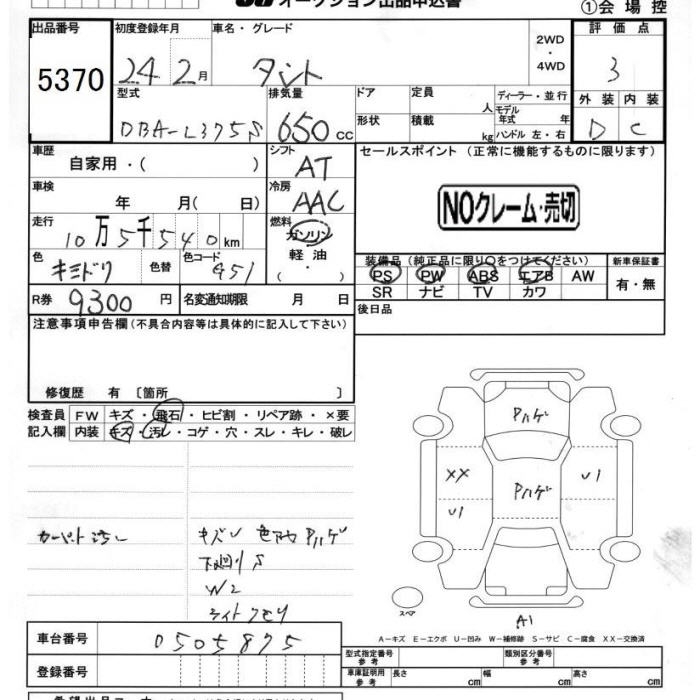 オークション出品申込書
①会場控
出品番号 初度登録年月 車名・グレード 評価点
5370 24年2月 タント 2WD・4WD 3
型式 排気量 ドア 定員 人 ディーラー・並行 外装 内装
DBA-L375S 650cc 形状 積載 kg モデル年式 年 ハンドル 左・右 D C
車歴 シフト セールスポイント (正常に機能するものに限ります)
自家用・( ) AT
車検 年 月( 日) 冷房 AAC NOクレーム・売切
走行 燃料
10万5千540km ガソリン
色 色替 色コード 軽油 装備品 (純正品に限り○をつけてください) 新車保証書
キミドリ G51 ・( ) PS PW ABS エアB AW 有・無
SR ナビ TV カワ
R券 9300円 名変通知期限 月 日 後日品
注意事項申告欄 (不具合内容等は具体的に記入して下さい)
修復歴 有 〔箇所 〕
検査員 FW キズ・飛石・ヒビ割・リペア跡・×要
記入欄 内装 キズ・汚レ・コゲ・穴・スレ・キレ・破レ
Pハゲ
XX Pハゲ U1
U1
カーペット汚レ キズU 色アセ Pハゲ
下廻りS
W2
ライトクモリ
スペア
A1
A－キズ E－エクボ U－凹み W－補修跡 S－サビ C－腐食 XX－交換済
車台番号 0505875
型式指定番号 参考 類別区分番号 参考
登録番号 車庫証明用 参考 長さ cm 幅 cm 高さ cm